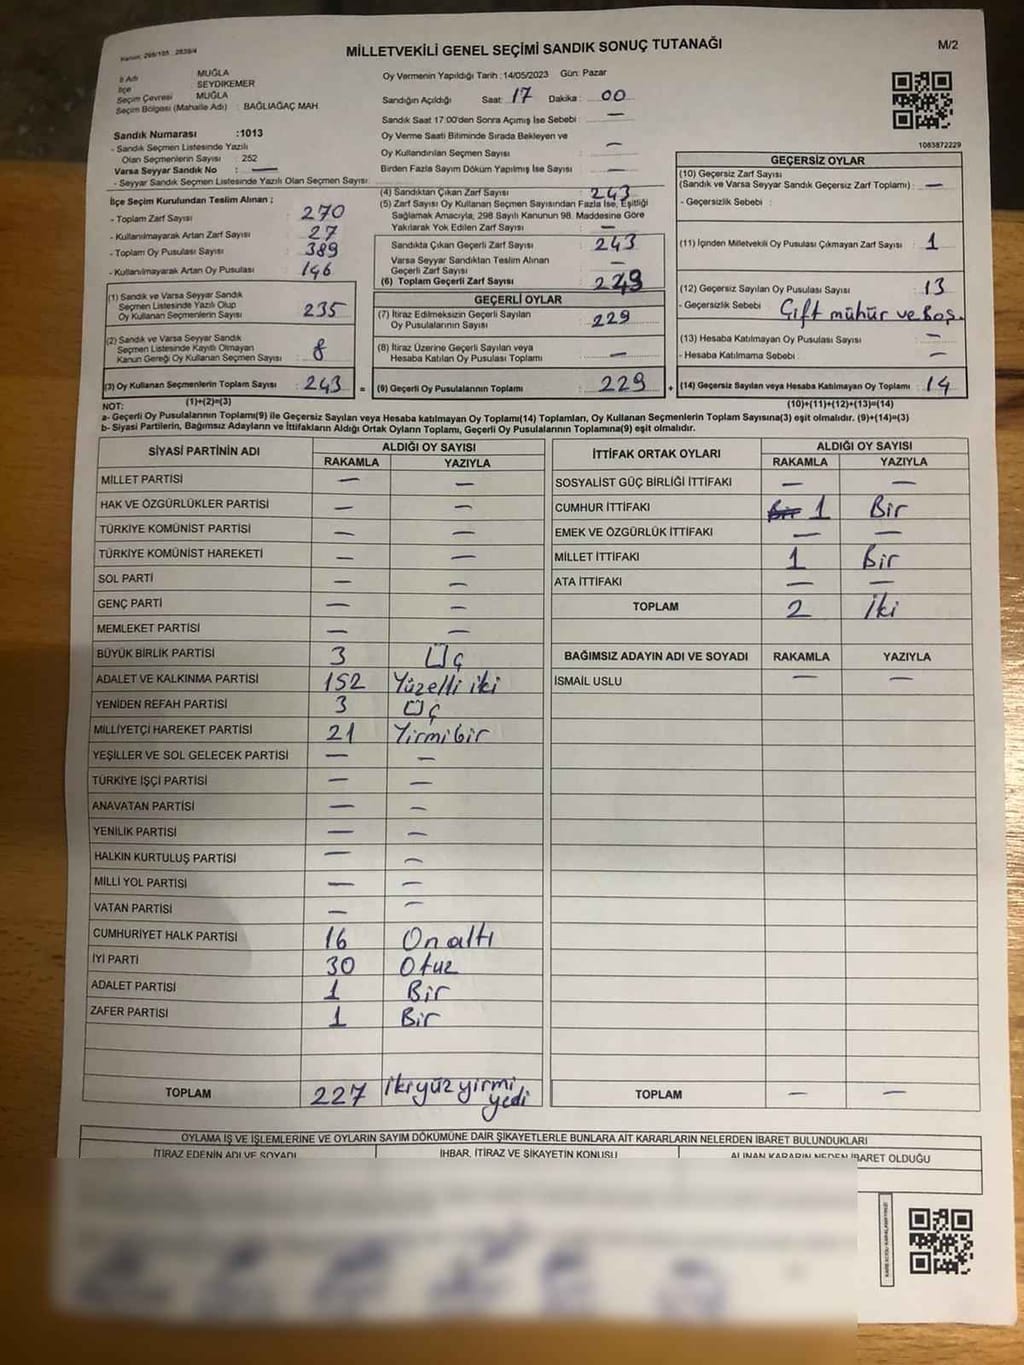 MİLLETVEKİLİ GENEL SEÇİMİ SANDIK SONUÇ TUTANAĞI
M/2
İl Adı : MUĞLA
İlçe : SEYDİKEMER
Seçim Çevresi : MUĞLA
Seçim Bölgesi (Mahalle Adı) : BAĞLIAĞAÇ MAH
Sandık Numarası :1013
- Sandık Seçmen Listesinde Yazılı
Olan Seçmenlerin Sayısı : 252
Varsa Seyyar Sandık No : —
- Seyyar Sandık Seçmen Listesinde Yazılı Olan Seçmen Sayısı:
Oy Vermenin Yapıldığı Tarih :14/05/2023 Gün: Pazar
Sandığın Açıldığı Saat: 17 Dakika : 00
Sandık Saat 17:00'den Sonra Açımış İse Sebebi : —
Oy Verme Saati Bitiminde Sırada Bekleyen ve
Oy Kullandırılan Seçmen Sayısı : —
Birden Fazla Sayım Döküm Yapılmış İse Sayısı : —
1083872229
İlçe Seçim Kurulundan Teslim Alınan ;
- Toplam Zarf Sayısı : 270
- Kullanılmayarak Artan Zarf Sayısı : 27
- Toplam Oy Pusulası Sayısı : 389
- Kullanılmayarak Artan Oy Pusulası : 146
(1) Sandık ve Varsa Seyyar Sandık
Seçmen Listesinde Yazılı Olup
Oy Kullanan Seçmenlerin Sayısı : 235
(2) Sandık ve Varsa Seyyar Sandık
Seçmen Listesinde Kayıtlı Olmayan
Kanun Gereği Oy Kullanan Seçmen Sayısı : 8
(3) Oy Kullanan Seçmenlerin Toplam Sayısı : 243 =
(1)+(2)=(3)
(4) Sandıktan Çıkan Zarf Sayısı : 243
(5) Zarf Sayısı Oy Kullanan Seçmen Sayısından Fazla İse, Eşitliği
Sağlamak Amacıyla, 298 Sayılı Kanunun 98. Maddesine Göre
Yakılarak Yok Edilen Zarf Sayısı : —
Sandıkta Çıkan Geçerli Zarf Sayısı : 243
Varsa Seyyar Sandıktan Teslim Alınan
Geçerli Zarf Sayısı : —
(6) Toplam Geçerli Zarf Sayısı :
GEÇERLİ OYLAR
(7) İtiraz Edilmeksizin Geçerli Sayılan
Oy Pusulalarının Sayısı : 229
(8) İtiraz Üzerine Geçerli Sayılan veya
Hesaba Katılan Oy Pusulası Toplamı : —
(9) Geçerli Oy Pusulalarının Toplamı : 229 +
GEÇERSİZ OYLAR
(10) Geçersiz Zarf Sayısı
(Sandık ve Varsa Seyyar Sandık Geçersiz Zarf Toplamı) : —
- Geçersizlik Sebebi :
(11) İçinden Milletvekili Oy Pusulası Çıkmayan Zarf Sayısı : 1
(12) Geçersiz Sayılan Oy Pusulası Sayısı : 13
- Geçersizlik Sebebi : Çift mühür ve Boş.
(13) Hesaba Katılmayan Oy Pusulası Sayısı : —
- Hesaba Katılmama Sebebi : —
(14) Geçersiz Sayılan veya Hesaba Katılmayan Oy Toplamı : 14
(10)+(11)+(12)+(13)=(14)
NOT:
a- Geçerli Oy Pusulalarının Toplamı(9) ile Geçersiz Sayılan veya Hesaba katılmayan Oy Toplamı(14) Toplamları, Oy Kullanan Seçmenlerin Toplam Sayısına(3) eşit olmalıdır. (9)+(14)=(3)
b- Siyasi Partilerin, Bağımsız Adayların ve İttifakların Aldığı Ortak Oyların Toplamı, Geçerli Oy Pusulalarının Toplamına(9) eşit olmalıdır.
SİYASİ PARTİNİN ADI ALDIĞI OY SAYISI
RAKAMLA YAZIYLA
MİLLET PARTİSİ — —
HAK VE ÖZGÜRLÜKLER PARTİSİ — —
TÜRKİYE KOMÜNİST PARTİSİ — —
TÜRKİYE KOMÜNİST HAREKETİ — —
SOL PARTİ — —
GENÇ PARTİ — —
MEMLEKET PARTİSİ — —
BÜYÜK BİRLİK PARTİSİ 3 Üç
ADALET VE KALKINMA PARTİSİ 152 Yüzelli iki
YENİDEN REFAH PARTİSİ 3 Üç
MİLLİYETÇİ HAREKET PARTİSİ 21 Yirmibir
YEŞİLLER VE SOL GELECEK PARTİSİ — —
TÜRKİYE İŞÇİ PARTİSİ — —
ANAVATAN PARTİSİ — —
YENİLİK PARTİSİ — —
HALKIN KURTULUŞ PARTİSİ — —
MİLLİ YOL PARTİSİ — —
VATAN PARTİSİ — —
CUMHURİYET HALK PARTİSİ 16 On altı
İYİ PARTİ 30 Otuz
ADALET PARTİSİ 1 Bir
ZAFER PARTİSİ 1 Bir
TOPLAM 227 İkiyüz yirmi yedi
İTTİFAK ORTAK OYLARI ALDIĞI OY SAYISI
RAKAMLA YAZIYLA
SOSYALİST GÜÇ BİRLİĞİ İTTİFAKI — —
CUMHUR İTTİFAKI Bir 1 Bir
EMEK VE ÖZGÜRLÜK İTTİFAKI — —
MİLLET İTTİFAKI 1 Bir
ATA İTTİFAKI — —
TOPLAM 2 İki
BAĞIMSIZ ADAYIN ADI VE SOYADI RAKAMLA YAZIYLA
İSMAİL USLU — —
TOPLAM — —
OYLAMA İŞ VE İŞLEMLERİNE VE OYLARIN SAYIM DÖKÜMÜNE DAİR ŞİKAYETLERLE BUNLARA AİT KARARLARIN NELERDEN İBARET BULUNDUKLARI
İTİRAZ EDENİN ADI VE SOYADI İHBAR, İTİRAZ VE ŞİKAYETİN KONUSU ALINAN KARARIN NEDEN İBARET OLDUĞU